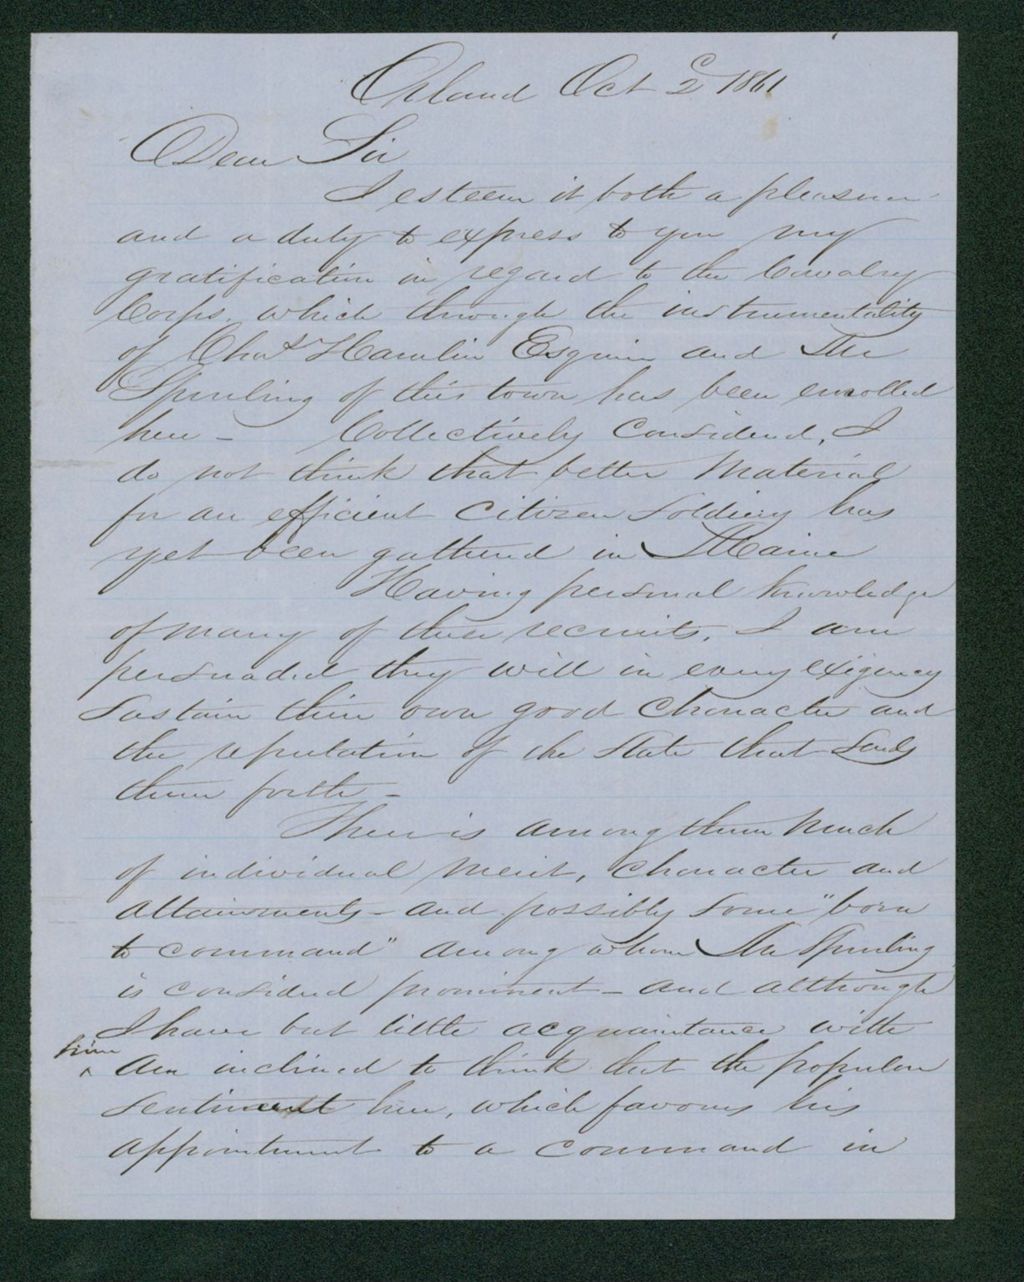 Orland Oct 2d 1861
Dear Sir
I esteem it both a pleasure
and a duty to express to you my
gratification in regard to the Cavalry
Corps, which through the instrumentality
of Chas Hamlin Esquire and Mr
Spurling of this town has been enrolled
here - Collectively considered, I
do not think that better material
for an efficient citizen soldiery has
yet been gathered in Maine
Having personal knowledge
of many of these recruits, I am
persuaded they will in every exigency
sustain their own good character and
the reputation of the State that sends
them forth -
There is among them much
of individual merit, character and
attainments - and possibly some "born
to command" among whom Mr Spurling
is considered prominent - and although
I have but little acquaintance with
him ^ am inclined to think that the popular
sentiment here, which favours his
appointment to a command in